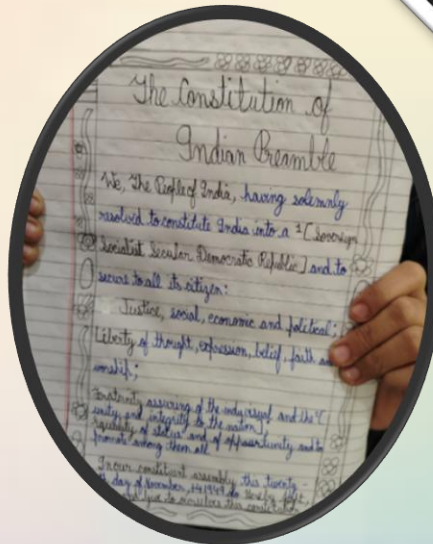 The Constitution of
Indian Preamble
We, The People of India, having solemnly
resolved to constitute India into a ¹[Sovereign
Socialist Secular Democratic Republic] and to
secure to all its citizen:
Justice, social, economic and political;
Liberty of thought, expression, belief, faith
worship;
Fraternity assuring of the and the
unity and integrity to the nation]
of status and of oppourtunity and to
promote among them all
In our constituent assembly this twenty-
day of November, 1949 do